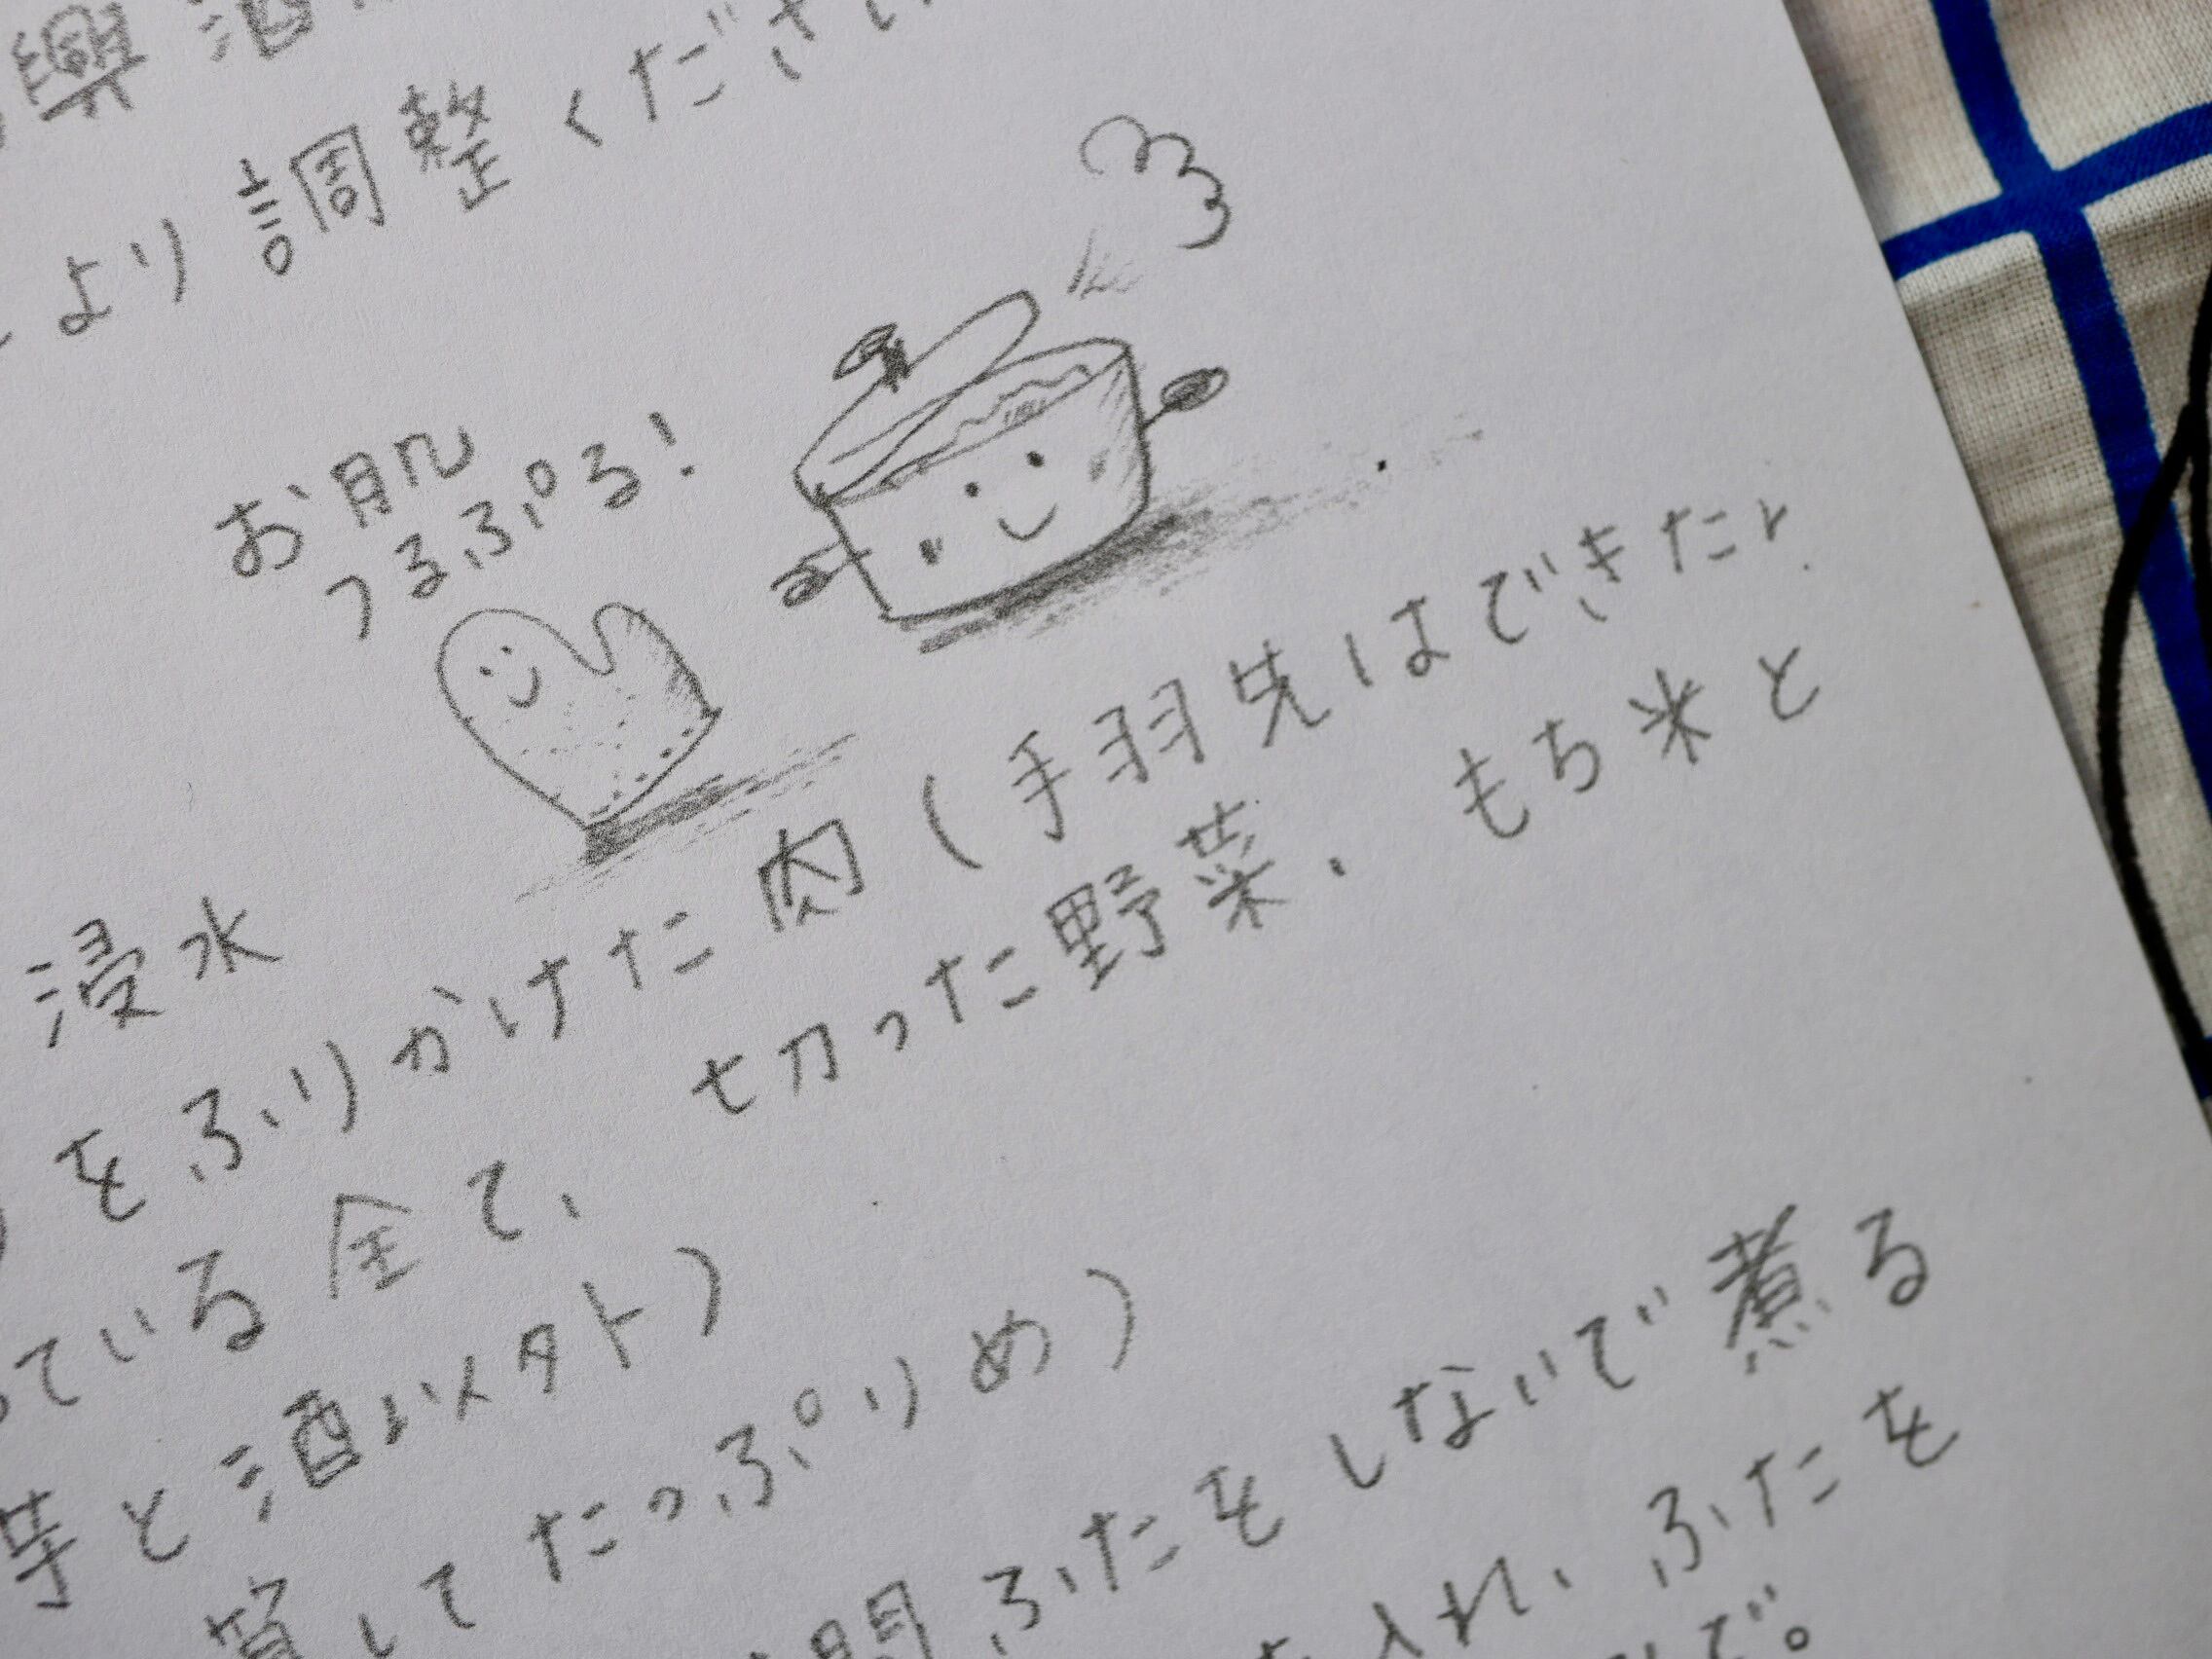 興酒
より調整ください
お肌
つるぷる!
浸水
をふりかけた肉(手羽先はできた
ている全て、切った野菜、もち米と
等と酒以外)
してたっぷりめ)
間ふたをしないで煮る
入れ、ふたを
で。